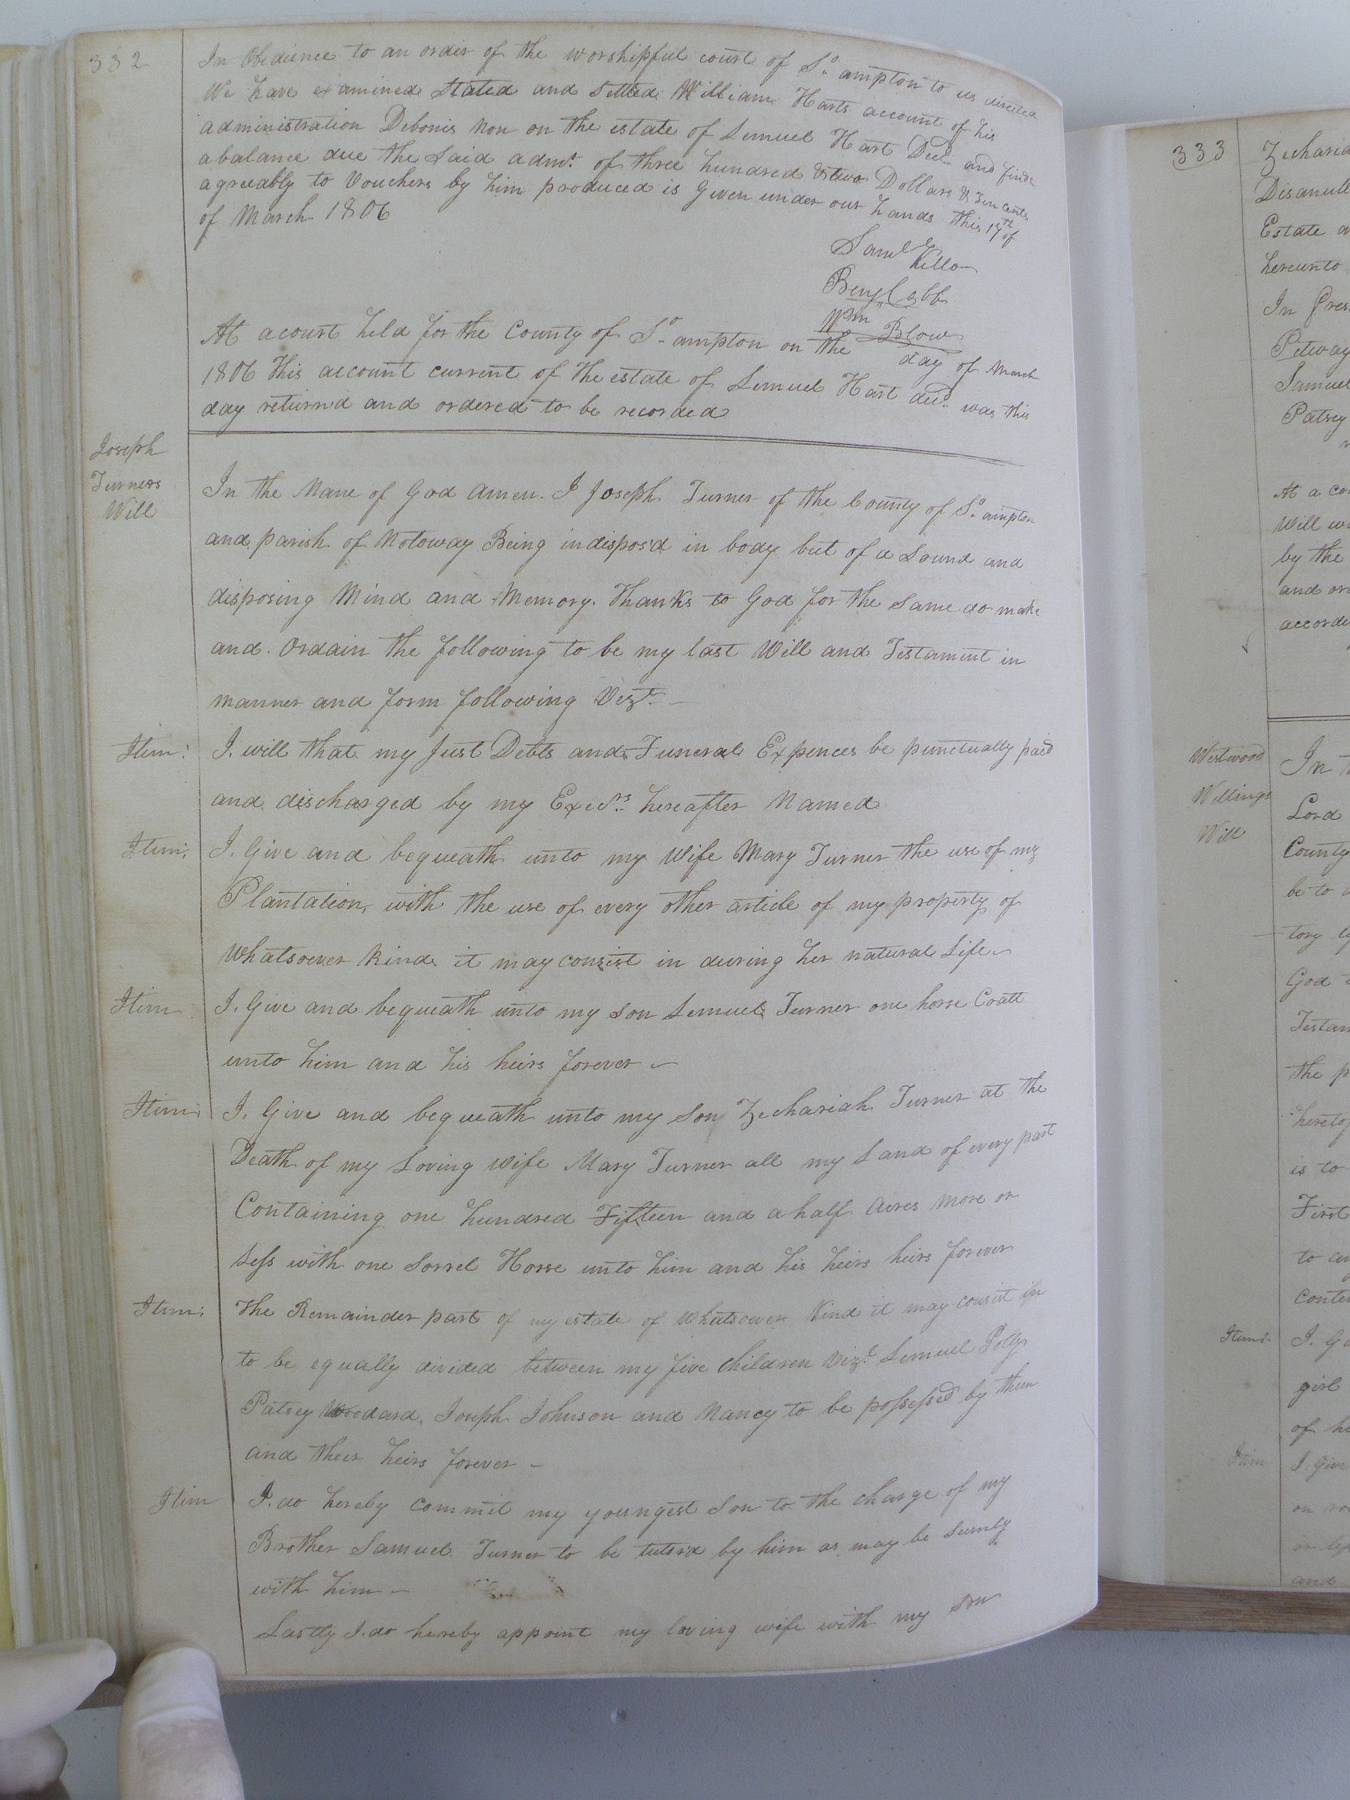 332
In Obedience to an order of the worshipful court of So. ampton to us directed
We have examined Stated and Settled William Harts account of his
administration Debonis Non on the estate of Lemuel Hart Decd. and find
a balance due the Said admr. of three hundred & two Dollars & Ten cents
agreeably to Vouchers by him produced is Given under our hands this 17th of
of March 1806
Saml Kello
Benj Cobb
Wm Blow
At a court held for the County of So. ampton on the day of March
1806 This account current of the estate of Lemuel Hart decd. was this
day returnd and ordered to be recorded
Joseph
Turners
Will
In the Name of God Amen. I Joseph Turner of the County of So. ampton
and parish of Notoway Being indispos'd in body but of a Sound and
disposing Mind and Memory. Thanks to God for the Same do make
and Ordain the following to be my last Will and Testament in
manner and form following Vizt.
Item: I will that my Just Debts and Funeral Expences be punctually paid
and discharged by my Execrs. hereafter Named
Item: I. Give and bequeath unto my Wife Mary Turner the use of my
Plantation, with the use of every other article of my property of
Whatsoever kind it may consist in during her natural Life
Item I. Give and bequeath unto my son Lemuel Turner one horse Coatt
unto him and his heirs forever
Item: I. Give and bequeath unto my Son Zechariah Turner at the
Death of my Loving wife Mary Turner all my Land of every part
Containing one hundred Fifteen and a half Acres More or
Less with one Sorrel Horse unto him and his heirs heirs forever
Item: The Remainder part of my estate of Whatsoever Kind it may consist in
to be equally divided between my five children Vizt. Lemuel Polly
Patsey Woodard, Joseph Johnson and Nancy to be possessed by them
and their heirs forever
Item I. do hereby commit my youngest Son to the charge of my
Brother Samuel Turner to be tutor'd by him as may be
with him
Lastly I. do hereby appoint my loving wife with my son
333
Zecharia
Disanull
Estate a
hereunto
In Pres
Petway
Samuel
Patsey
At a co
Will w
by the
and or
accord
Westwood
Wellings
Will
In
Lord
County
be to
tory
God
Testam
the p
hereto
is to
First
to
conte
Item: I. Gi
girl
of he
Item I. Give
on
and